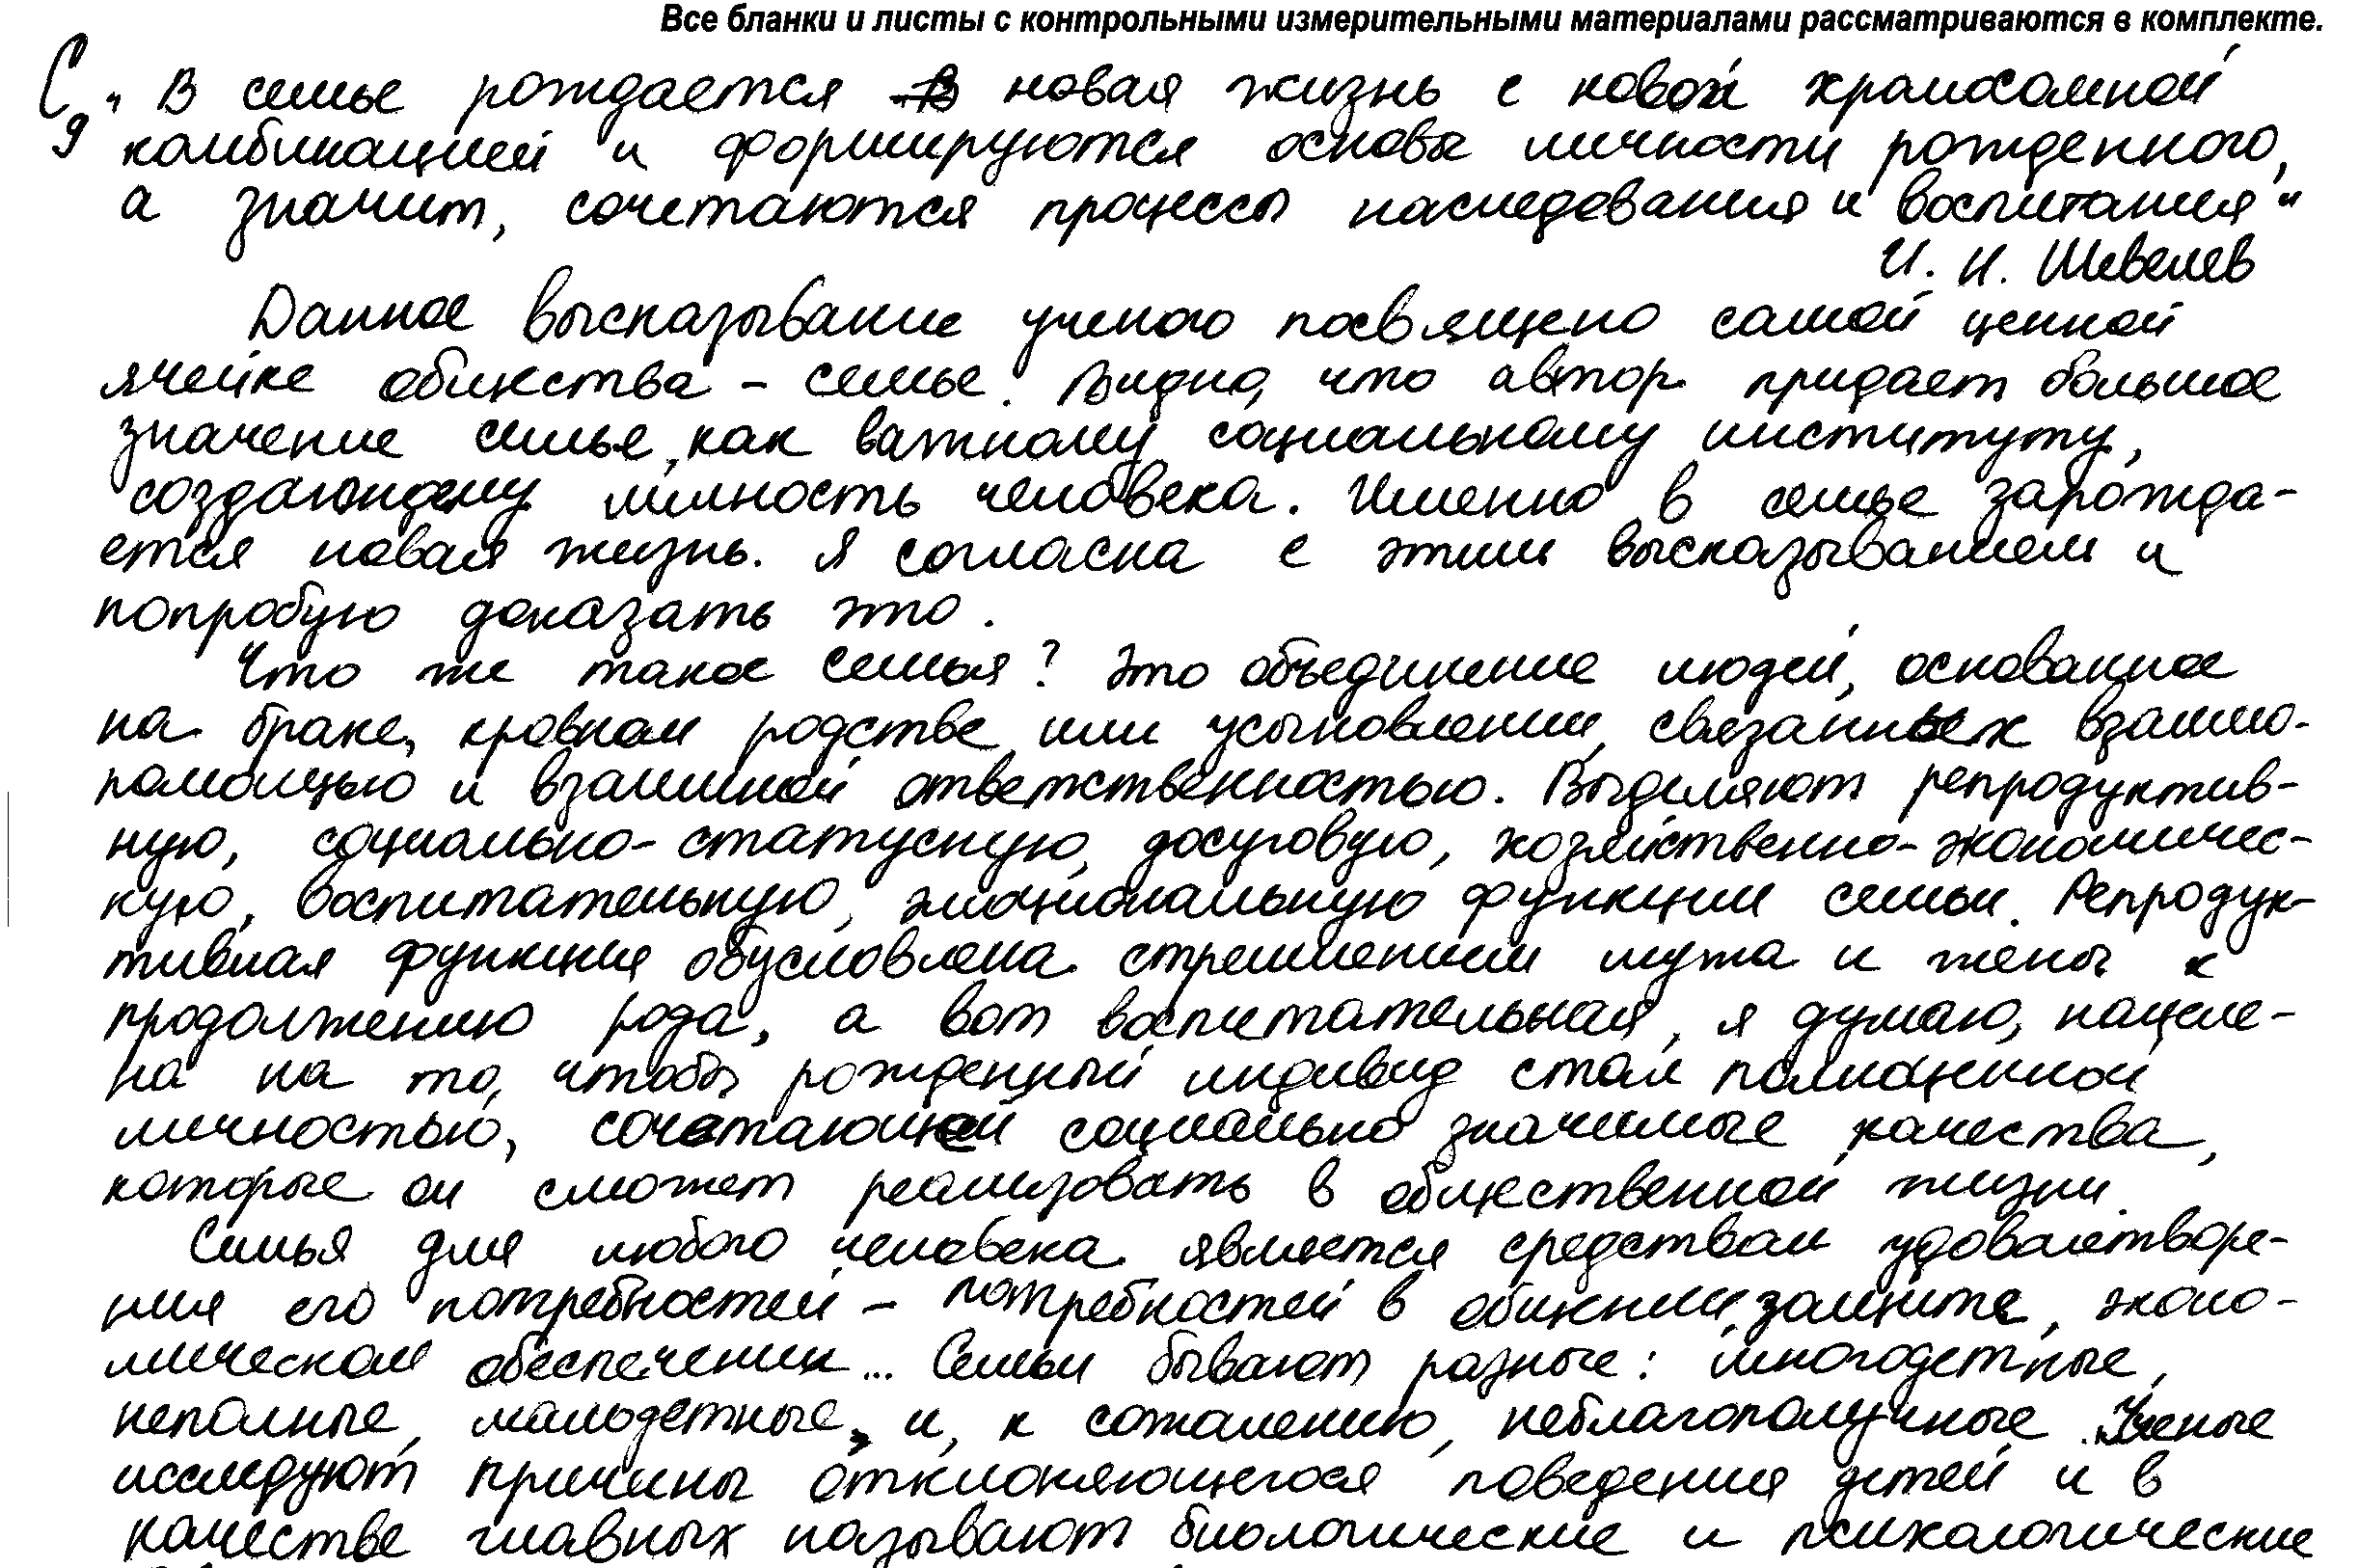 Все бланки и листы с контрольными измерительными материалами рассматриваются в комплекте.
С9 „В семье рождается новая жизнь с новой хромосомной
комбинацией и формируются основы личности рожденного,
а значит, сочетаются процессы наследования и воспитания"
И. Н. Шевелев
Данное высказывание ученого посвящено самой ценной
ячейке общества – семье. Видно, что автор придает большое
значение семье, как важному социальному институту,
создающему личность человека. Именно в семье зарожда-
ется новая жизнь. Я согласна с этим высказыванием и
попробую доказать это.
Что же такое семья? Это объединение людей, основанное
на браке, кровном родстве или усыновлении, связанных взаимо-
помощью и взаимной ответственностью. Выделяют репродуктив-
ную, социально-статусную, досуговую, хозяйственно-экономичес-
кую, воспитательную, эмоциональную функции семьи. Репродук-
тивная функция обусловлена стремлением мужа и жены к
продолжению рода, а вот воспитательная, я думаю, нацеле-
на на то, чтобы рожденный индивид стал полноценной
личностью, сочетающей социально значимые качества,
которые он сможет реализовать в общественной жизни.
Семья для любого человека является средством удовлетворе-
ния его потребностей – потребностей в общении, защите, эконо-
мическом обеспечении... Семьи бывают разные: многодетные,
неполные, малодетные, и, к сожалению, неблагополучные. Ученые
исследуют причины отклоняющегося поведения детей и в
качестве главных называют биологические и психологические